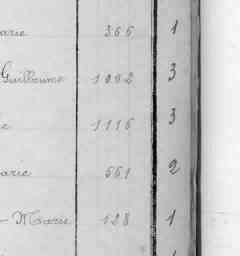 arie 366 1
Guillaume 1082 3
e 1116 3
arie 661 2
- Marie 128 1